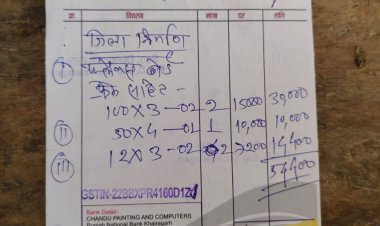 क्र. विवरण मात्रा दर राशि
जिला निर्माण
I फ्लेक्स बोर्ड
फ्रेम सहित -
100 X 3 - 02 2 15000 30,000
II 50 X 4 - 01 1 10,000 10,000
III 12 X 3 - 02 2 7200 14400
54400
GSTIN-22BEXPR4160D1Z
Bank Detail-
CHANDU PAINTING AND COMPUTERS
Punjab National Bank Khairagarh